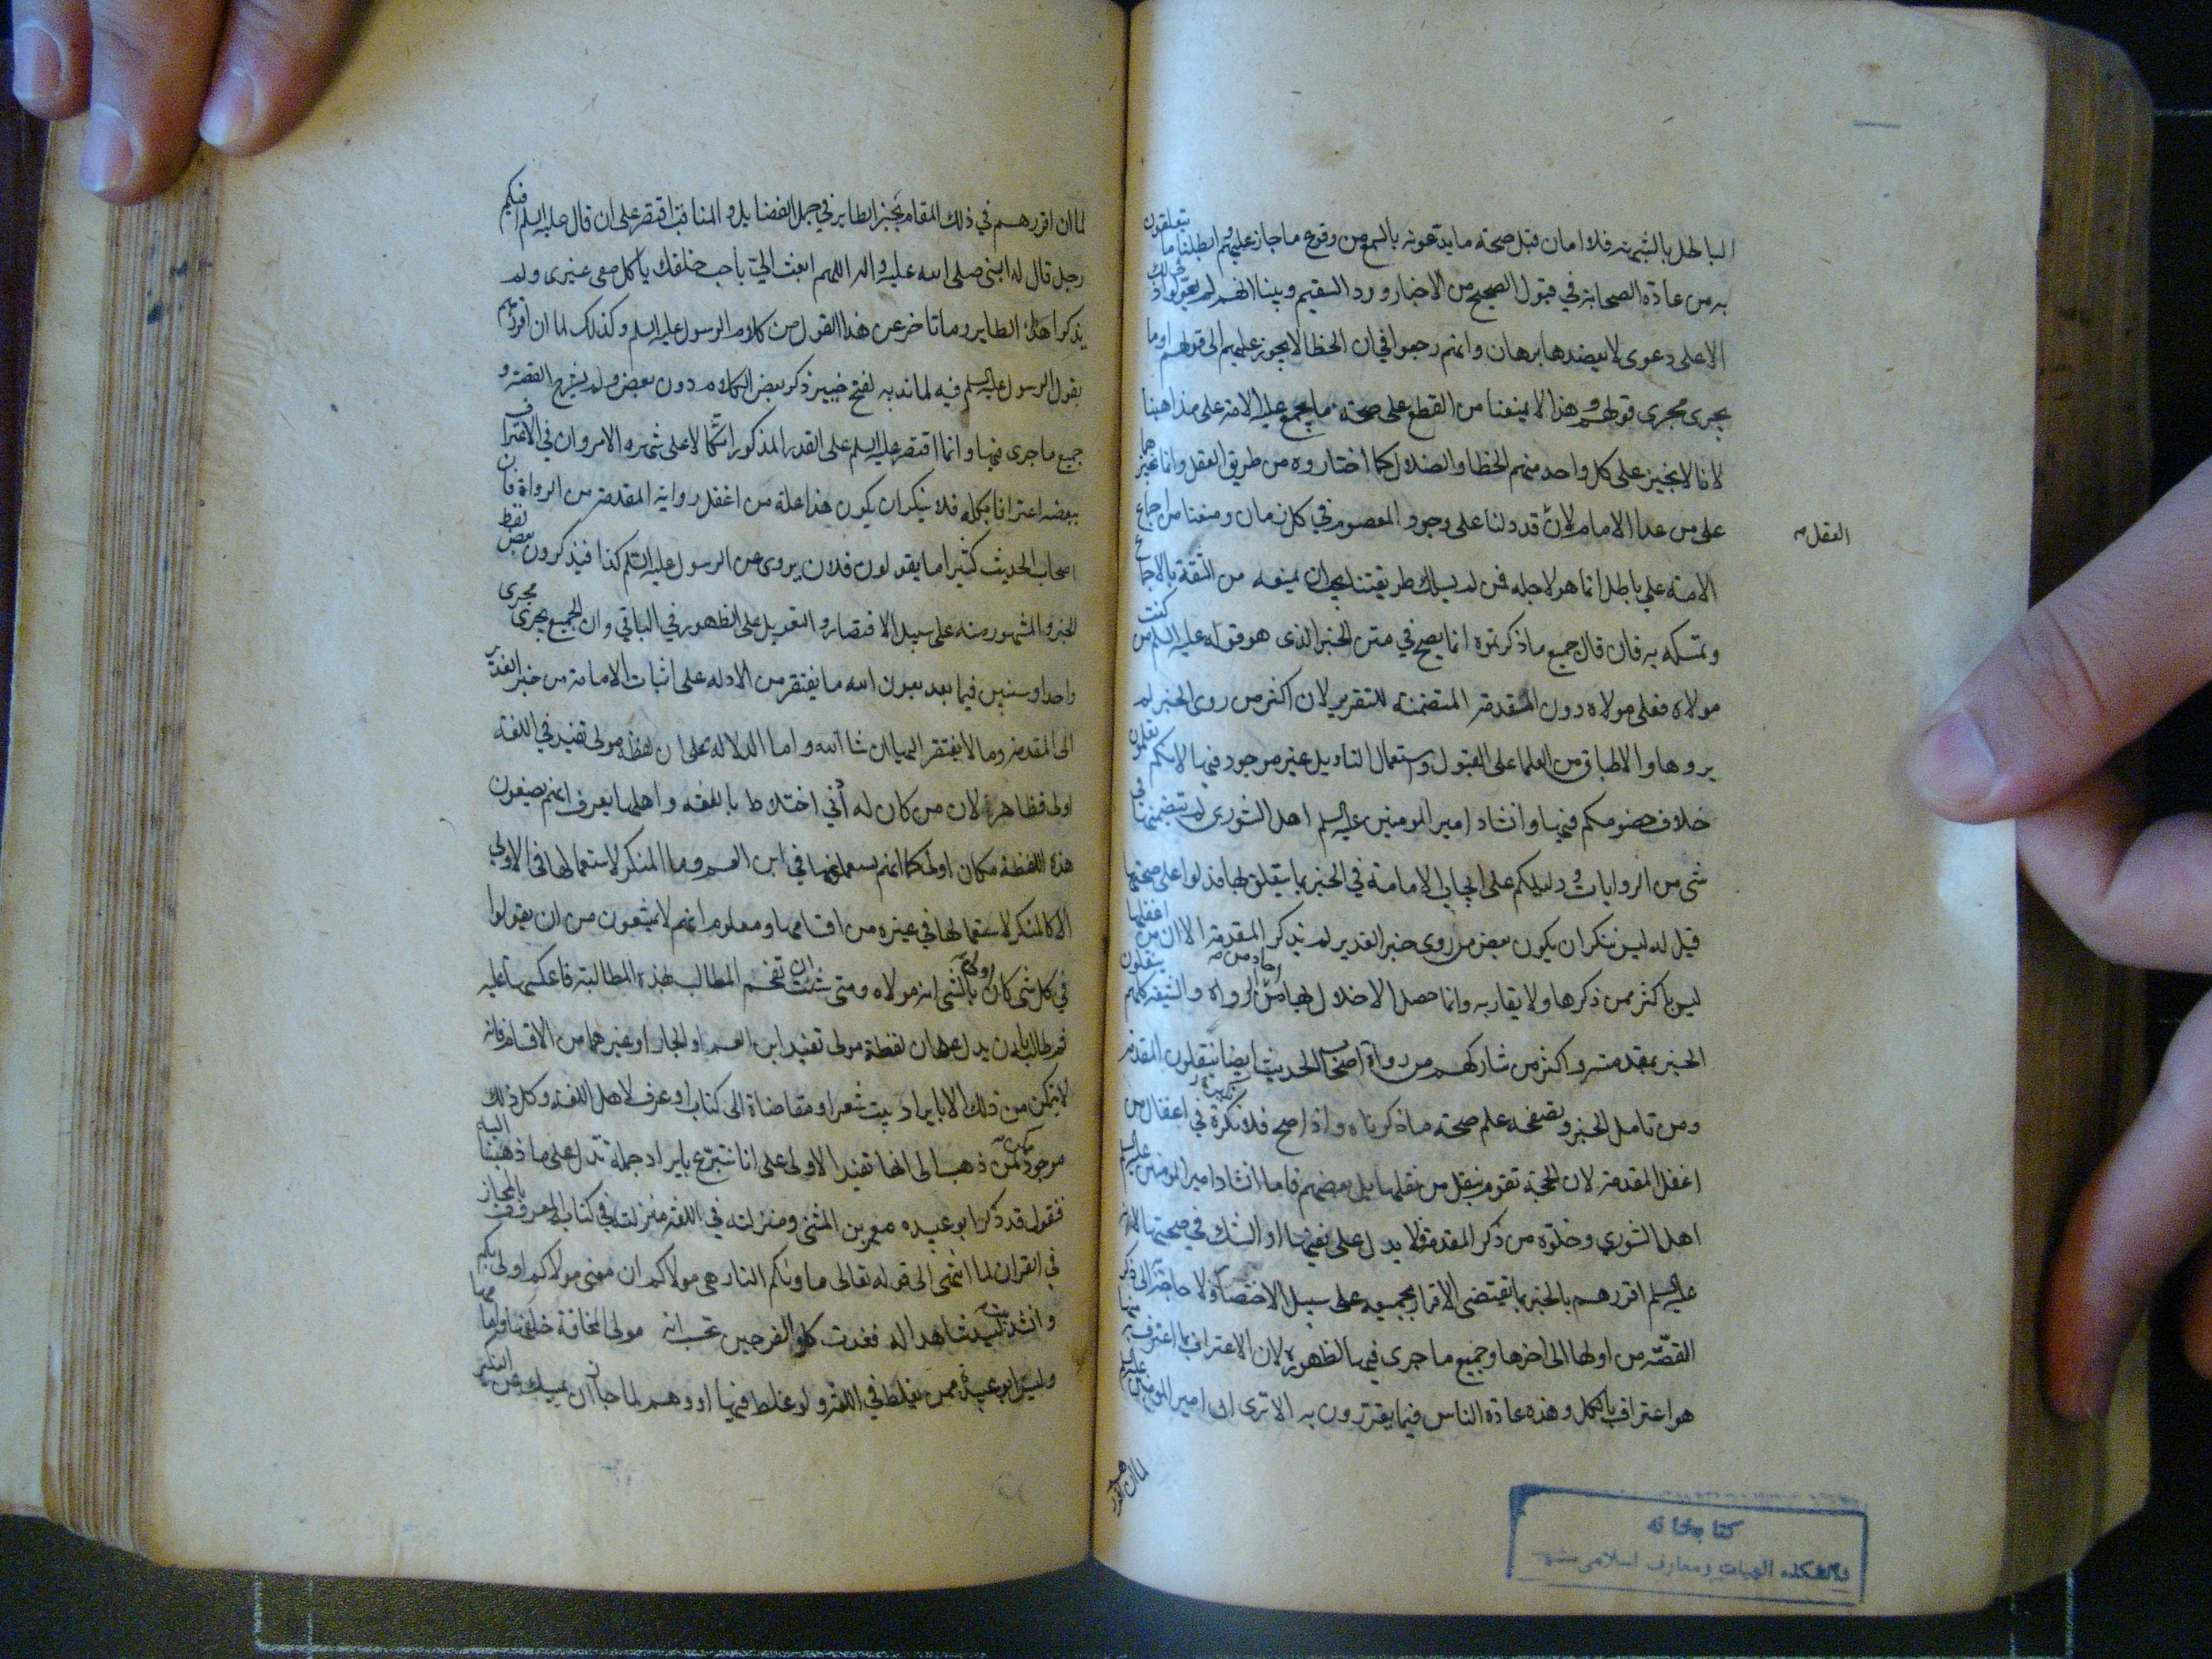 الباطل بالشبهة فلا امان قبل صحة ما يدعونه بالسمع من وقوع ما جاز عليهم وثم ابطلنا ما يتعلقون
به من عادة الصحابة في قبول الصحيح من الاخبار ورد السقيم وبينا انهم لم يعولوا في ذلك
الا على دعوى لا يعضدها برهان وانهم رجعوا في ان الخطا لا يجوز عليهم الى قولهم او ما
يجرى مجرى قولهم وهذا لا يمنعنا من القطع على صحة ما يجمع عليه الامة على مذاهبنا
لانا لا نجيز على كل واحد منهم الخطا والضلال كما اختاروه من طريق العقل وانما نجيزهما
على من عدا الامام لان قد دلنا على وجود المعصوم في كل زمان ومنعنا من اجماع
العقل
الامة على باطل انما هو لاجله فمن لم يسلك طريقتنا يجب ان يمنعه من الثقة بالاجماع
وتمسكه به فان قال جميع ما ذكرتموه انما يصح في متن الخبر الذى هو قوله عليه السلم من كنت
مولاه فعلى مولاه دون المقدمة المتضمنة للتقرير لان اكثر من روى الخبر لم
يروها والاطباق من العلما على القبول واستعمال التاويل غير موجود فيها لانكم تعلمون
خلاف خصومكم فيها وانشاد امير المومنين عليه السلم اهل الشورى لم تتضمنها في
شى من الروايات ودليلكم على ايجاب الامامة في الخبر بما يتعلق بها فدلوا على صحتها
قيل له ليس ننكر ان يكون بعض من روى خبر الغدير لم يذكر المقدمة الا ان من اغفلها
ليس باكثر ممن ذكرها ولا يقاربه وانما حصل الاخلال بها من احاد من الرواة والشيعة كلهم ينقلون
الخبر بمقدمته واكثر من شاركهم من رواة اصحاب الحديث ايضا ينقلون المقدمة
ومن تامل الخبر وتصفحه علم صحة ما ذكرناه واذا صح فلا نكرة في اغفال من
اغفل المقدمة لان الحجة تقوم بنقل من نقلها بل ببعضهم فاما انشاد امير المومنين عليه السلم
اهل الشورى وخلوه من ذكر المقدمة فلا يدل على نفيها او الشك في صحتها لانه
عليه السلم اقررهم بالخبر بما يقتضى الاقرار بجميعه على سبيل الاختصار ولا حاجة به الى ذكر
القصة من اولها الى اخرها وجميع ما جرى فيها لظهوره لان الاعتراف بما اعترف به منها
هو اعتراف بالكل وهذه عادة الناس فيما يقررون به الا ترى ان امير المومنين عليه السلم
لما ان اقرر
كتابخانه
دانشكده الهيات ومعارف اسلامى مشهد
لما ان اقررهم في ذلك المقام بخبر الطاير في جمل الفضايل والمناقب اقتصر على ان قال عليه السلم افيكم
رجل قال له النبى صلى الله عليه واله اللهم ابعث الى باحب خلقك ياكل معى غيرى ولم
يذكر اهداء الطاير وما تاخر عن هذا القول من كلام الرسول عليه السلم وكذلك لما ان اقررهم
بقول الرسول عليه السلم فيه لما ندبه لفتح خيبر ذكر بعض الكلام دون بعض ولم يشرح القصة و
جميع ما جرى فيها وانما اقتصر عليه السلم على القدر المذكور اتكالا على شهرة الامر وان في الاعتراف
ببعضه اعترافا بكله فلا ينكر ان يكون هذا علة من اغفل رواية المقدمة من الرواة فان
اصحاب الحديث كثيرا ما يقولون فلان يروى عن الرسول عليه السلم كذا فيذكرون بعض لفظ
الخبر والمشهور منه على سبيل الاقتصار والتعويل على الظهور في الباقي وان الجميع يجرى مجرى
واحدا وسنبين فيما بعد بعون الله ما يفتقر من الادلة على اثبات الامامة من خبر الغدير
الى المقدمة وما لا يفتقر اليها ان شا الله واما الدلالة على ان لفظة مولى تفيد في اللغة
اولى فظاهرة لان من كان له ادنى اختلاط باللغة واهلها يعرف انهم يضعون
هذه اللفظة مكان اولى كما انهم يستعملونها في ابن العم وما المنكر لاستعمالها في الاولى
الا كالمنكر لاستعمالها في غيره من اقسامها ومعلوم انهم لا يمتنعون من ان يقولوا
في كل شى كان اولى بالشى انه مولاه ومتى شئت ان تفحم المطالب بهذه المطالبة فاعكسها عليه
ثم طالبه بان يدل على ان لفظة مولى تفيد ابن العم او الجار او غيرهما من الاقسام فانه
لا يتمكن من ذلك الا بايراد بيت شعر او مقاضاة الى كتاب او عرف لاهل اللغة وكل ذلك
موجود ممكن لمن ذهب الى انها تفيد الاولى على انا نتبرع بايراد جملة تدل على ما ذهبنا اليه
فنقول قد ذكر ابو عبيده معمر بن المثنى ومنزلته في اللغة منزلته في كتابه المعروف بالمجاز
في القران لما انتهى الى قوله تعالى ماويكم النار هى مولاكم ان معنى مولاكم اولى بكم
وانشد بيت لبيد شاهدا له فغدت كلا الفرجين تحسب انه مولى المخافة خلفها وامامها
وليس ابو عبيدة ممن يغلط في اللغة ولو غلط فيها او وهم لما جاز ان يمسك عن النكير